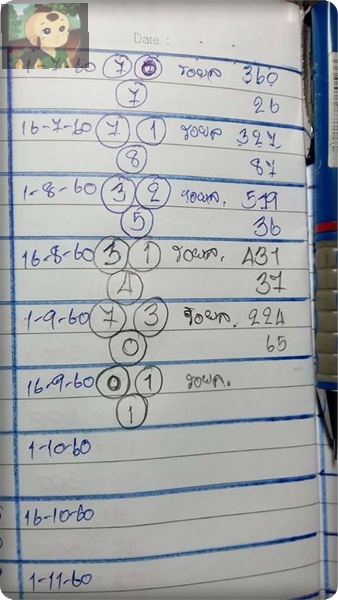 Date :
-60 7 0 รอผล 360
7 26
16-7-60 7 1 รอผล 327
8 87
1-8-60 3 2 รอผล. 519
5 36
16-8-60 3 1 รอผล. 431
4 37
1-9-60 7 3 รอผล. 224
0 65
16-9-60 0 1 รอผล.
1
1-10-60
16-10-60
1-11-60